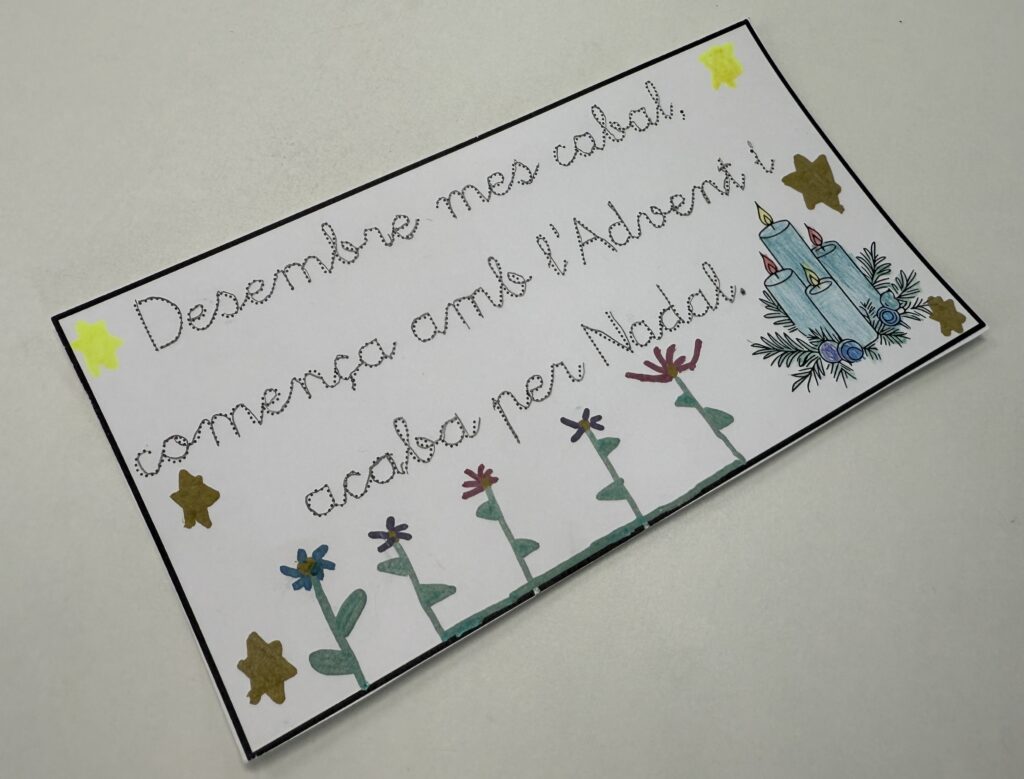 Desembre mes cabal,
comença amb l'Advent i
acaba per Nadal.